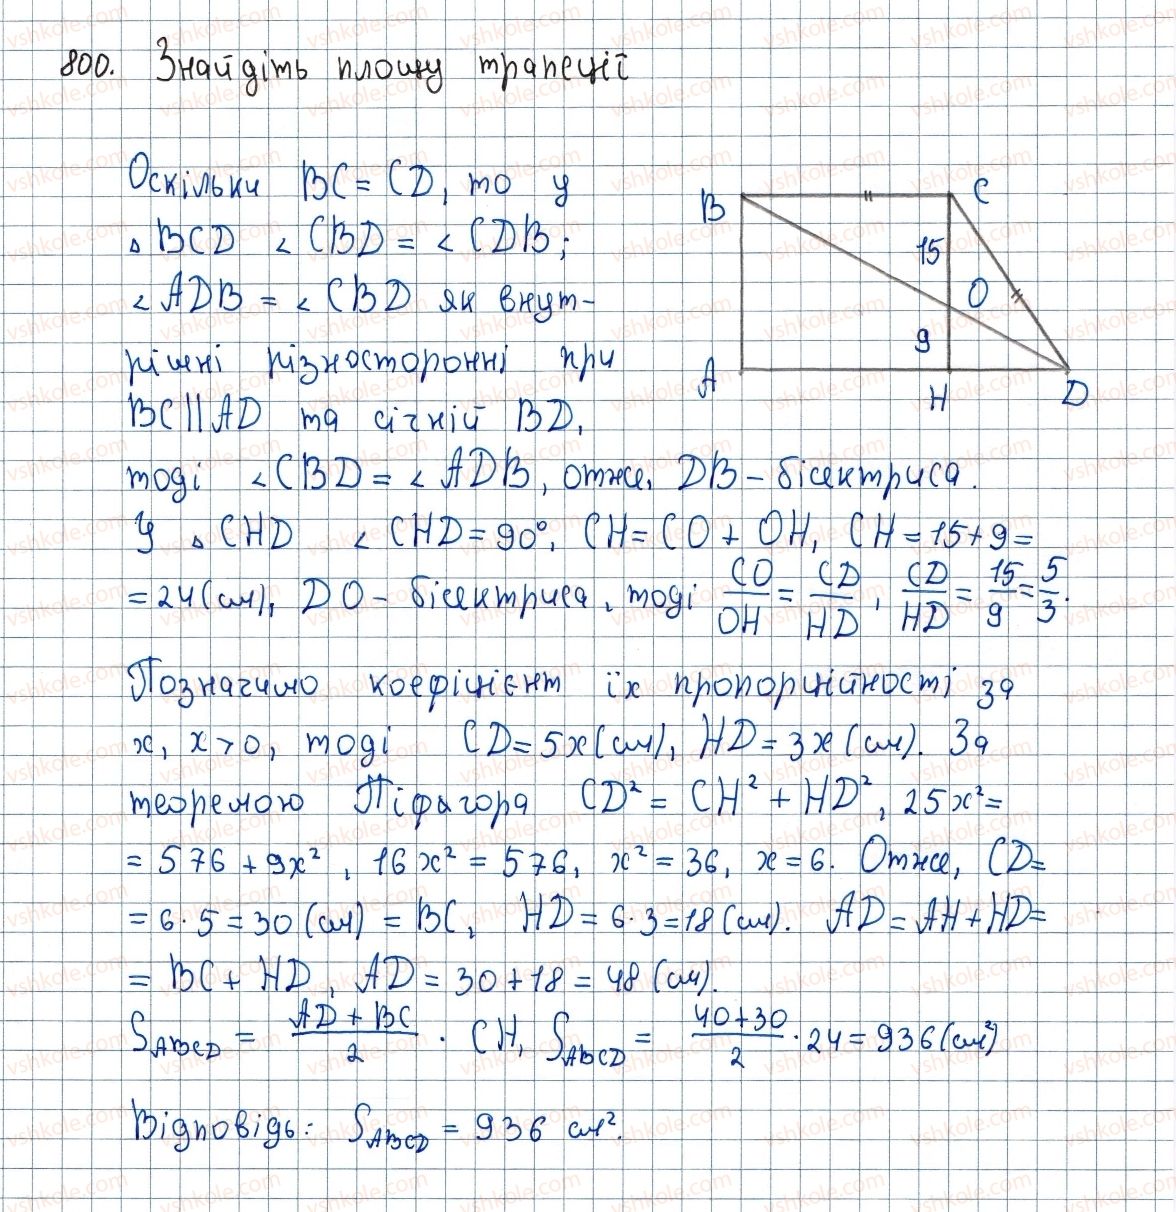 800. Знайдіть площу трапеції
Оскільки BC = CD, то у
△ BCD ∠ CBD = ∠ CDB;
∠ ADB = ∠ CBD як внут-
рішні різносторонні при
BC || AD та січній BD,
тоді ∠ CBD = ∠ ADB, отже, DB - бісектриса.
У △ CHD ∠ CHD = 90°, CH = CO + OH, CH = 15 + 9 =
= 24 (см), DO - бісектриса, тоді CO/OH = CD/HD, CD/HD = 15/9 = 5/3.
Позначимо коефіцієнт їх пропорційності за
x, x > 0, тоді CD = 5x (см), HD = 3x (см). За
теоремою Піфагора CD² = CH² + HD², 25x² =
= 576 + 9x², 16x² = 576, x² = 36, x = 6. Отже, CD =
= 6 · 5 = 30 (см) = BC, HD = 6 · 3 = 18 (см). AD = AH + HD =
= BC + HD, AD = 30 + 18 = 48 (см).
S ABCD = (AD + BC)/2 · CH, S ABCD = (40 + 30)/2 · 24 = 936 (см²)
Відповідь: S ABCD = 936 см².
B C
15
O
9
A H D
vshkole.com